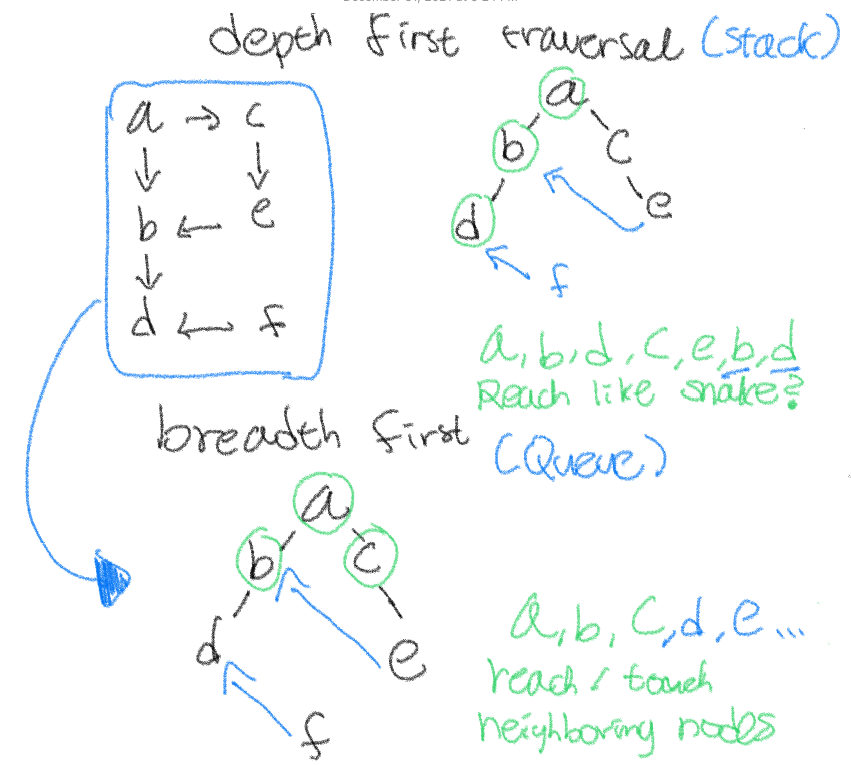 depth first traversal (stack)
a → c
↓ ↓
b ← e
↓
d ← f
a
b c
d e
f
a, b, d, c, e, b, d
Reach like snake?
breadth first (Queue)
a
b c
d e
f
a, b, c, d, e ...
reach / touch
neighboring nodes